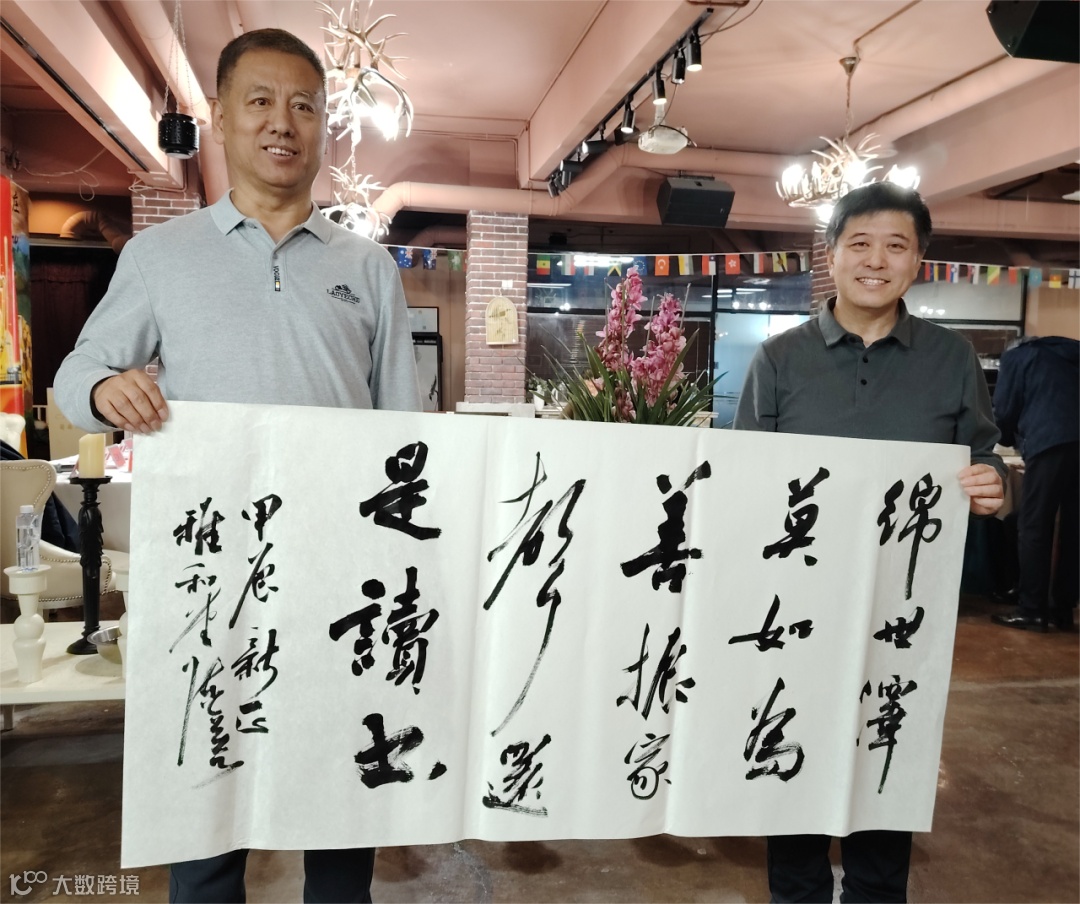 绵世澤
莫如為
善振家
聲還
是讀书
甲辰新正
雅和堂
大数跨境